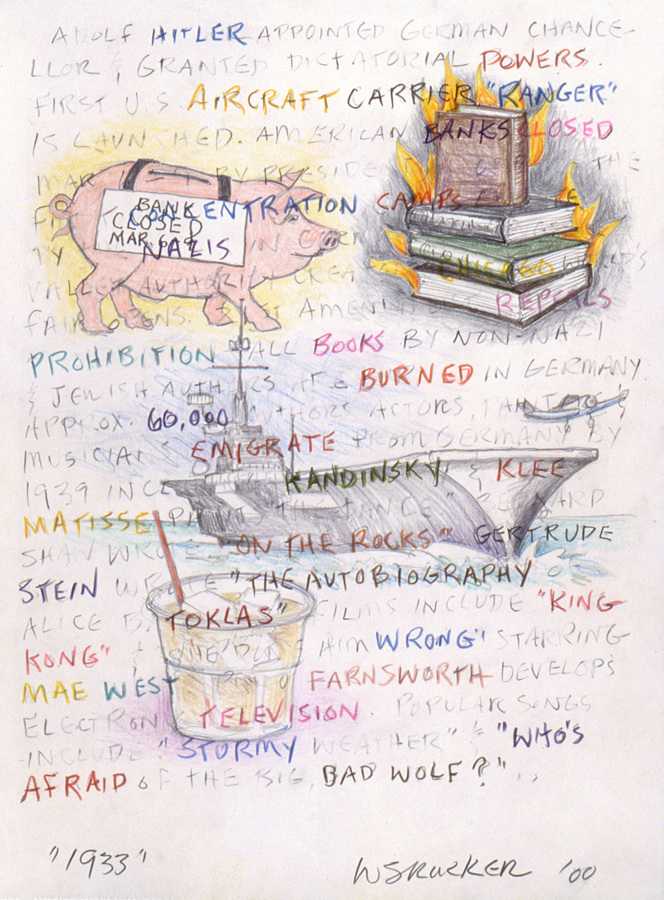 ADOLF HITLER APPOINTED GERMAN CHANCE-
LLOR & GRANTED DICTATORIAL POWERS.
FIRST U.S. AIRCRAFT CARRIER, "RANGER"
IS LAUNCHED. AMERICAN BANKS CLOSED
MAR BY THE
CONCENTRATION CAMPS
BANK
CLOSED
MAR. 6-9
NAZIS IN
VALLEY AUTHORITY CREA CHICAGO WORLD'S
FAIR OPENS. 21ST AMEND REPEALS
PROHIBITION ALL BOOKS BY NON-NAZI
& JEWISH AUTHORS ARE BURNED IN GERMANY.
APPROX. 60,000 AUTHORS, ACTORS, PAINTERS &
MUSICIANS EMIGRATE FROM GERMANY BY
1939 INCL KANDINSKY & KLEE
MATISSE PAINTS "THE DANCE" BERNARD
SHAW WROTE "ON THE ROCKS" GERTRUDE
STEIN WROTE "THE AUTOBIOGRAPHY OF
ALICE B. TOKLAS" FILMS INCLUDE "KING
KONG" & "SHE DONE HIM WRONG" STARRING
MAE WEST FARNSWORTH DEVELOPS
ELECTRON TELEVISION. POPULAR SONGS
INCLUDE "STORMY WEATHER" & "WHO'S
AFRAID OF THE BIG, BAD WOLF?"
"1933"
WSRUCKER '00